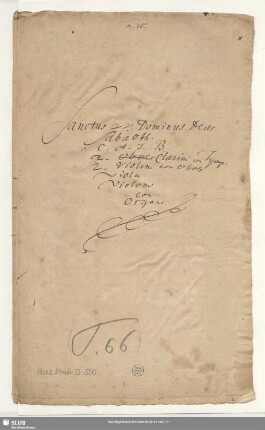 n. 15.
Sanctus Dominus Deus
Sabaoth.
C. A. T. B
2. Clarini con Tymp.
2. Violini con Oboe
Viola
Violone
con
Organo
(T. 66)
Mus. 3466-D-550
SLUB